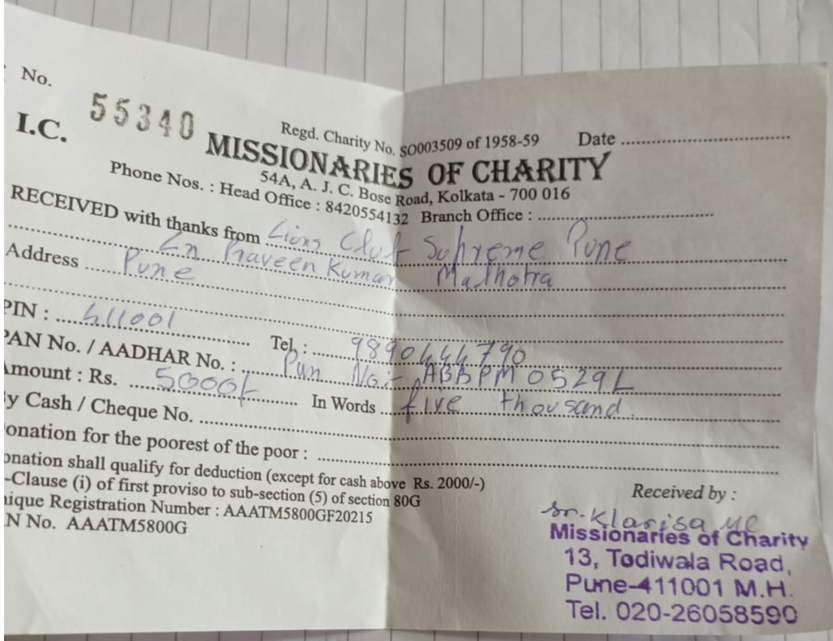 No. 55340
I.C.
Regd. Charity No. SO003509 of 1958-59 Date
MISSIONARIES OF CHARITY
54A, A. J. C. Bose Road, Kolkata - 700 016
Phone Nos. : Head Office : 8420554132 Branch Office :
RECEIVED with thanks from Lions Club Supreme Pune
Ln Praveen Kumar Malhotra
Address Pune
PIN : 411001 Tel. : 9890444790
PAN No. / AADHAR No. : Pan No:- ABBPM0529L
Amount : Rs. 5000/- In Words five thousand.
y Cash / Cheque No.
onation for the poorest of the poor :
onation shall qualify for deduction (except for cash above Rs. 2000/-)
-Clause (i) of first proviso to sub-section (5) of section 80G
nique Registration Number : AAATM5800GF20215
N No. AAATM5800G
Received by :
Sr. Klarisa MC
Missionaries of Charity
13, Todiwala Road,
Pune-411001 M.H.
Tel. 020-26058590